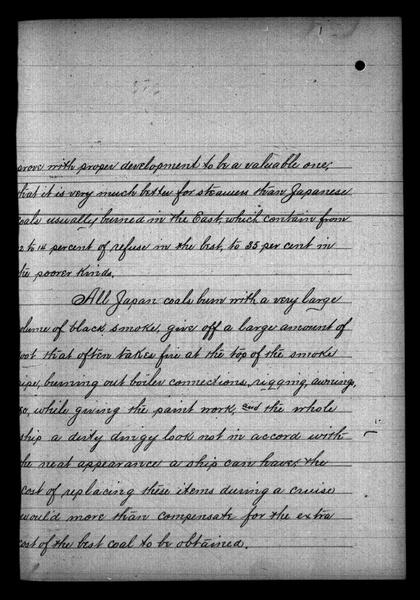 prove with proper development to be a valuable one;
that it is very much better for steamers than Japanese
coals usually burned in the East, which contain from
to 14 per cent of refuse in the best, to 35 per cent in
the poorer kinds.
All Japan coals burn with a very large
volume of black smoke, give off a large amount of
soot that often takes fire at the top of the smoke
pipe, burning out boiler connections, rigging, awnings,
&c, while giving the paint work, and the whole
ship a dirty dingy look not in accord with
the neat appearance a ship can have, the
cost of replacing these items during a cruise
would more than compensate for the extra
cost of the best coal to be obtained.